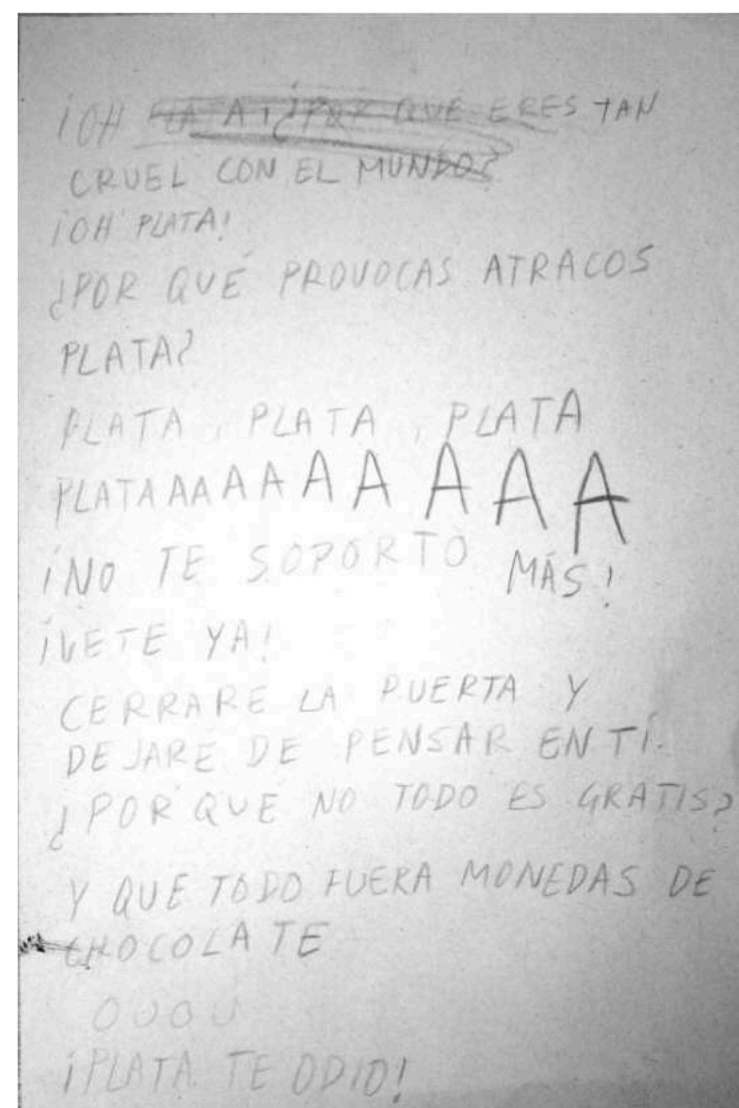 ¡OH PLATA! ¿POR QUÉ ERES TAN
CRUEL CON EL MUNDO?
¡OH PLATA!
¿POR QUÉ PROVOCAS ATRACOS
PLATA?
PLATA, PLATA, PLATA
PLATAAAAAAAAA
¡NO TE SOPORTO MÁS!
¡VETE YA!
CERRARE LA PUERTA Y
DEJARE DE PENSAR EN TÍ.
¿POR QUE NO TODO ES GRATIS?
Y QUE TODO FUERA MONEDAS DE
CHOCOLATE
OUOU
¡PLATA TE ODIO!